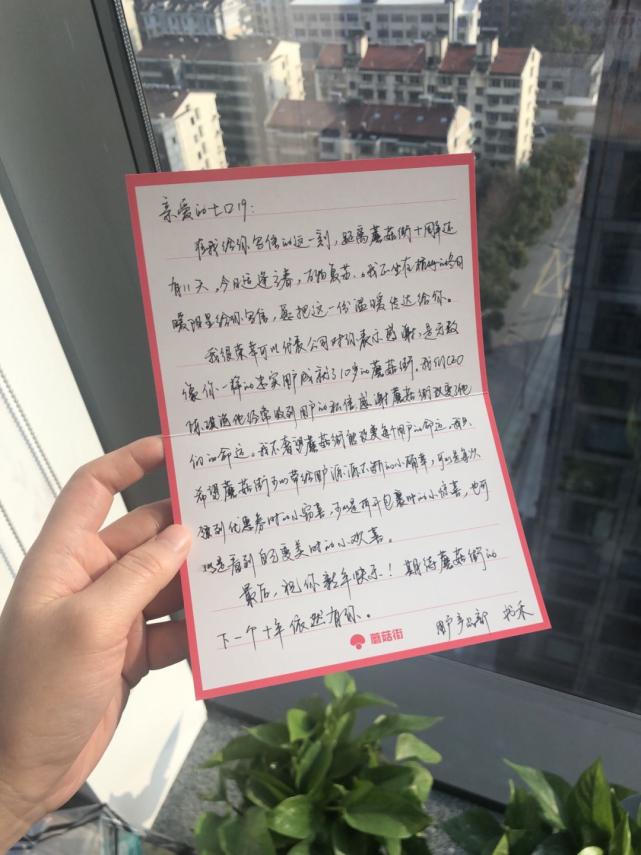 亲爱的七口19：
在我给你写信的这一刻，距离蘑菇街十周年还
有11天，今日适逢立春，万物复苏。我正坐在杭州的冬日
暖阳里给你写信，愿把这一份温暖传达给你。
我很荣幸可以代表公司对你表示感谢，是无数
像你一样的忠实用户成就了10岁的蘑菇街。我们CEO
陈琪说他经常收到用户的私信感谢蘑菇街改变他
们的命运。我不奢望蘑菇街能改变每个用户的命运，我只
希望蘑菇街可以带给用户源源不断的小确幸，可以是每次
领到优惠券时的小窃喜，可以是拆开包裹时的小惊喜，也可
以是看到自己变美时的小欢喜。
最后，祝你新年快乐！期待蘑菇街的
下一个十年依然有你。
蘑菇街
用户产品部 书禾